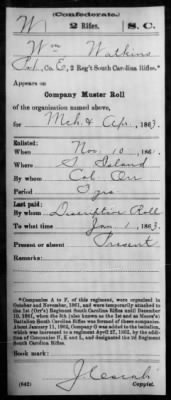 (Confederate.)
W 2 Rifles. S. C.
Wm Watkins
Pvt., Co. E, 2 Reg't South Carolina Rifles.*
Appears on
Company Muster Roll
of the organization named above,
for Mch & Apr, 1863.
Enlisted:
When Nov 10, 1861.
Where S Island
By whom Col Orr
Period 3 yrs
Last paid:
By whom Descriptive Roll
To what time Jan 1, 1863.
Present or absent Present
Remarks:
*Companies A to F, of this regiment, were organized in
October and November, 1861, and were temporarily attached to
the 1st (Orr's) Regiment South Carolina Rifles until December
Battalion South Carolina Rifles was formed of these companies.
About January 11, 1862, Company G was added to the battalion,
which was increased to a regiment April 27, 1862, by the
addition of Companies H, K and L, and designated the 2d Regiment
South Carolina Rifles.
Book mark:
(642) Copyist.